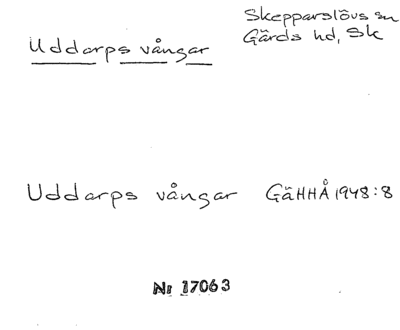 Uddarps vångar
Skepparslövs sn
Gärds hd, Sk
Uddarps vångar GäHHÅ 1948:8
Nr 17063